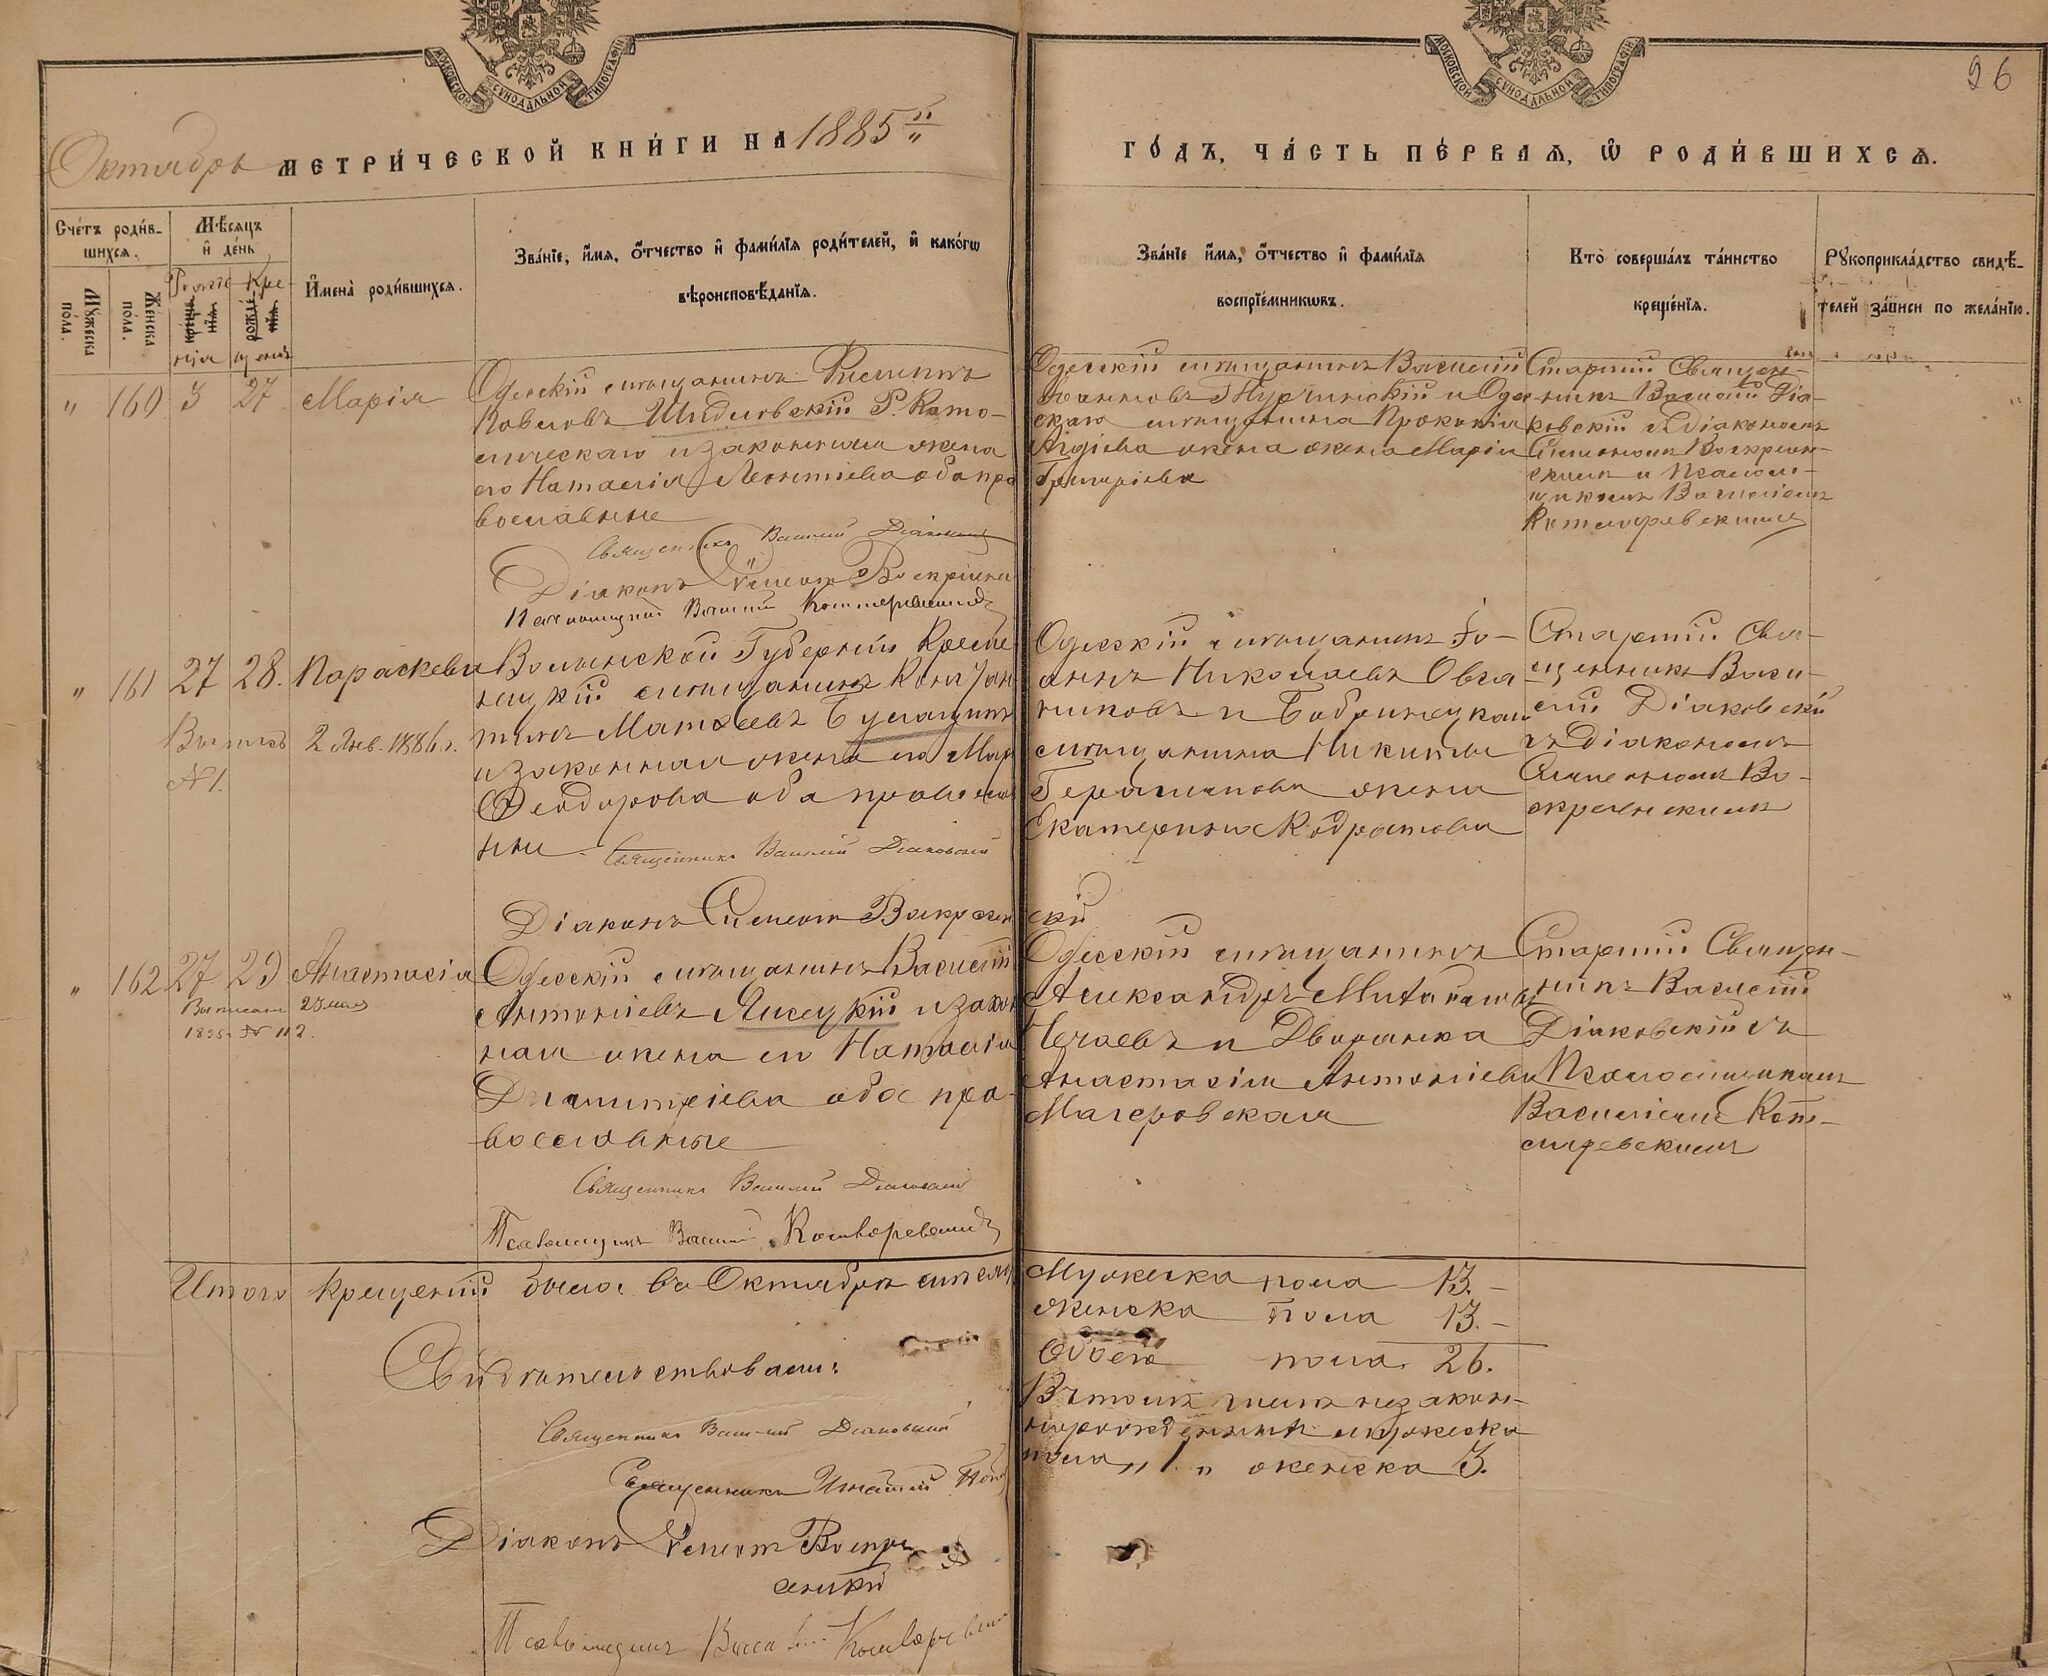 МОСКОВСКОЙ СУНОДАЛЬНОЙ ТИПОГРАФІИ
МОСКОВСКОЙ СУНОДАЛЬНОЙ ТИПОГРАФІИ
26
Октябрь МЕТРИ́ЧЕСКОЙ КНИ́ГИ НА 1885 й
ГО́ДЪ, ЧА́СТЬ ПЕ́РВАѦ, Ѡ҆ РОДИ́ВШИХСѦ.
Сче́тъ роди́в-
шихсѧ.
Мꙋ́жеска по́ла.
Же́нска по́ла.
Мѣ́сѧцъ
и҆ де́нь
Кре-
щенія
И҆мена̀ роди́вшихсѧ.
Зва́нїе, и҆́мѧ, ѻ҆́тчество и҆ фами́лїѧ роди́телей, и҆ како́гѡ
вѣроисповѣ́данїѧ.
Зва́нїе и҆́мѧ, ѻ҆́тчество и҆ фами́лїѧ
воспрїе́мникѡвъ.
Кто̀ соверша́лъ та́инство
креще́нїѧ.
Рꙋкоприкла́дство свидѣ́-
телей за́писи по жела́нїю.
" 160 3 27 Марія
Одесскій мѣщанинъ
Шидловскій Р. Като-
лическаго и законная жена
его Наталія Леонтіева оба пра
вославные
Священникъ Василій Діаковскій
Діаконъ Симеонъ Воскресен
Псаломщикъ Василій Котляревскій
Одесскій мѣщанинъ Василій
Іоанновъ и Одес-
скаго мѣщанина Прокопія
жена Марія
Григоріева
Старшій Священ-
никъ Василій Діа-
ковскій съ діакономъ
Симеономъ Воскресен-
скимъ и Псалом-
щикомъ Василіемъ
Котляревскимъ
" 161 27 28. Параскева
2 Янв. 1886 г.
№ 1.
Волынской Губерніи Креме-
нецкій мѣщанинъ Констан
тинъ Матѳеевъ
и законная жена его Мар
Ѳеодорова оба православ
ные
Священникъ Василій Діаковскій
Діаконъ Симеонъ Воскресен
скій
Одесскій мѣщанинъ Іо-
аннъ Николаевъ Овся
никовъ и Бобринецкаго
мѣщанина Никиты
Герасимова жена
Екатерина Кодратова
Старшій Свя-
щенникъ Васи-
лій Діаковскій
съ Діакономъ
Симеономъ Во-
скресенскимъ
" 162 27 29 Анастасія
№ 112.
Одесскій мѣщанинъ Василій
Антоніевъ Яисецкій и закон
ная жена его Наталія
Димитріева оба пра-
вославные
Священникъ Василій Діаковскій
Псаломщикъ Василій Котляревскій
Одесскій мѣщанинъ
Александръ Михайловъ
Нечаевъ и Дворянка
Анастасія Антоніева
Магеровская
Старшій Священ-
никъ Василій
Діаковскій съ
Псаломщикомъ
Василіемъ Кот-
ляревскимъ
Итого крещеній было въ Октябрѣ мѣсяцѣ
Мужеска пола 13.-
женска пола 13.-
Обоего пола 26.
Въ томъ числѣ незакон-
норожденныхъ мужеска
пола „ 1 „ женска 3.
Свидѣтельствовали:
Священникъ Василій Діаковскій
Священникъ Игнатій
Діаконъ Симеонъ Воскре
сенскій
Псаломщикъ Василій Котляревскій